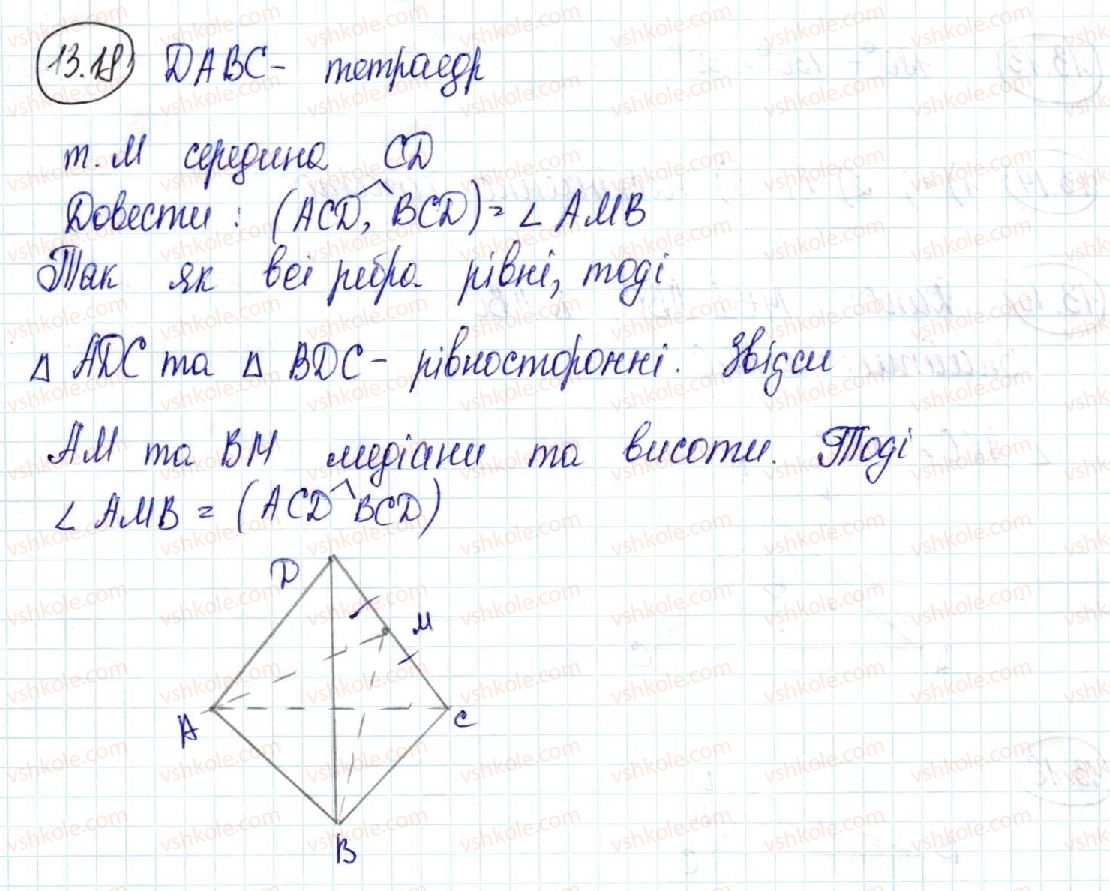 13.18 DABC - тетраедр
т. М середина CD
Довести: (ACD,^BCD) = ∠ AMB
Так як всі ребра рівні, тоді
△ ADC та △ BDC - рівносторонні. Звідси
AM та BM медіани та висоти. Тоді
∠ AMB = (ACD^BCD)
D
M
A
C
B
vshkole.com